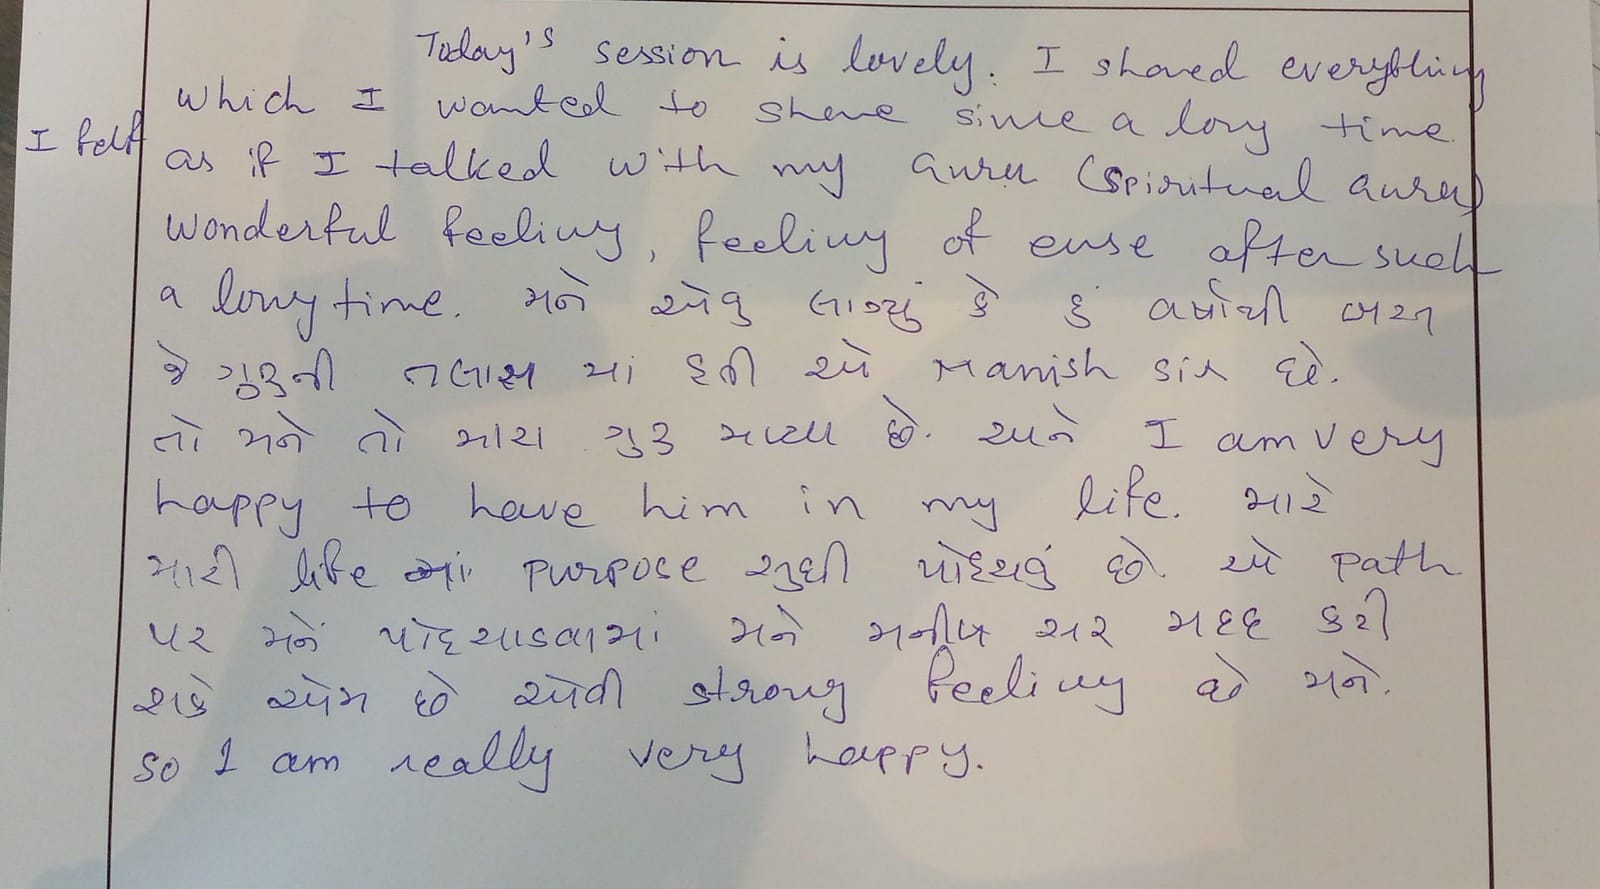 Today's session is lovely. I shared everything
which I wanted to share since a long time.
I felt as if I talked with my Guru (spiritual Guru)
wonderful feeling, feeling of ease after such
a long time. મને એવુ લાગ્યું કે હું વર્ષોથી બસ
જે ગુરુની તલાસ માં હતી એ Manish sir છે.
તો મને તો મારા ગુરુ મળ્યા છે. અને I am very
happy to have him in my life. મારે
મારી life માં purpose સુધી પોંહચવું છે. એ path
પર મને પોંહચાડવામાં મને મનીષ સર મદદ કરી
શકે એમ છે એવી strong feeling છે મને.
so I am really very happy.